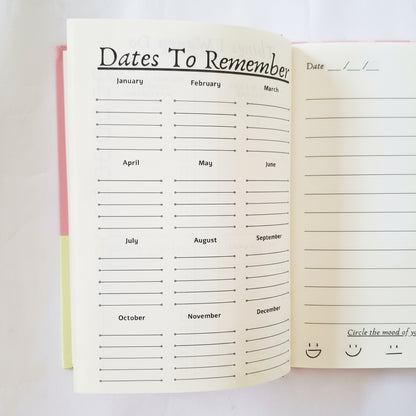 Dates To Remember
January February March
April May June
July August September
October November December
Date __/__/__
Circle the mood of